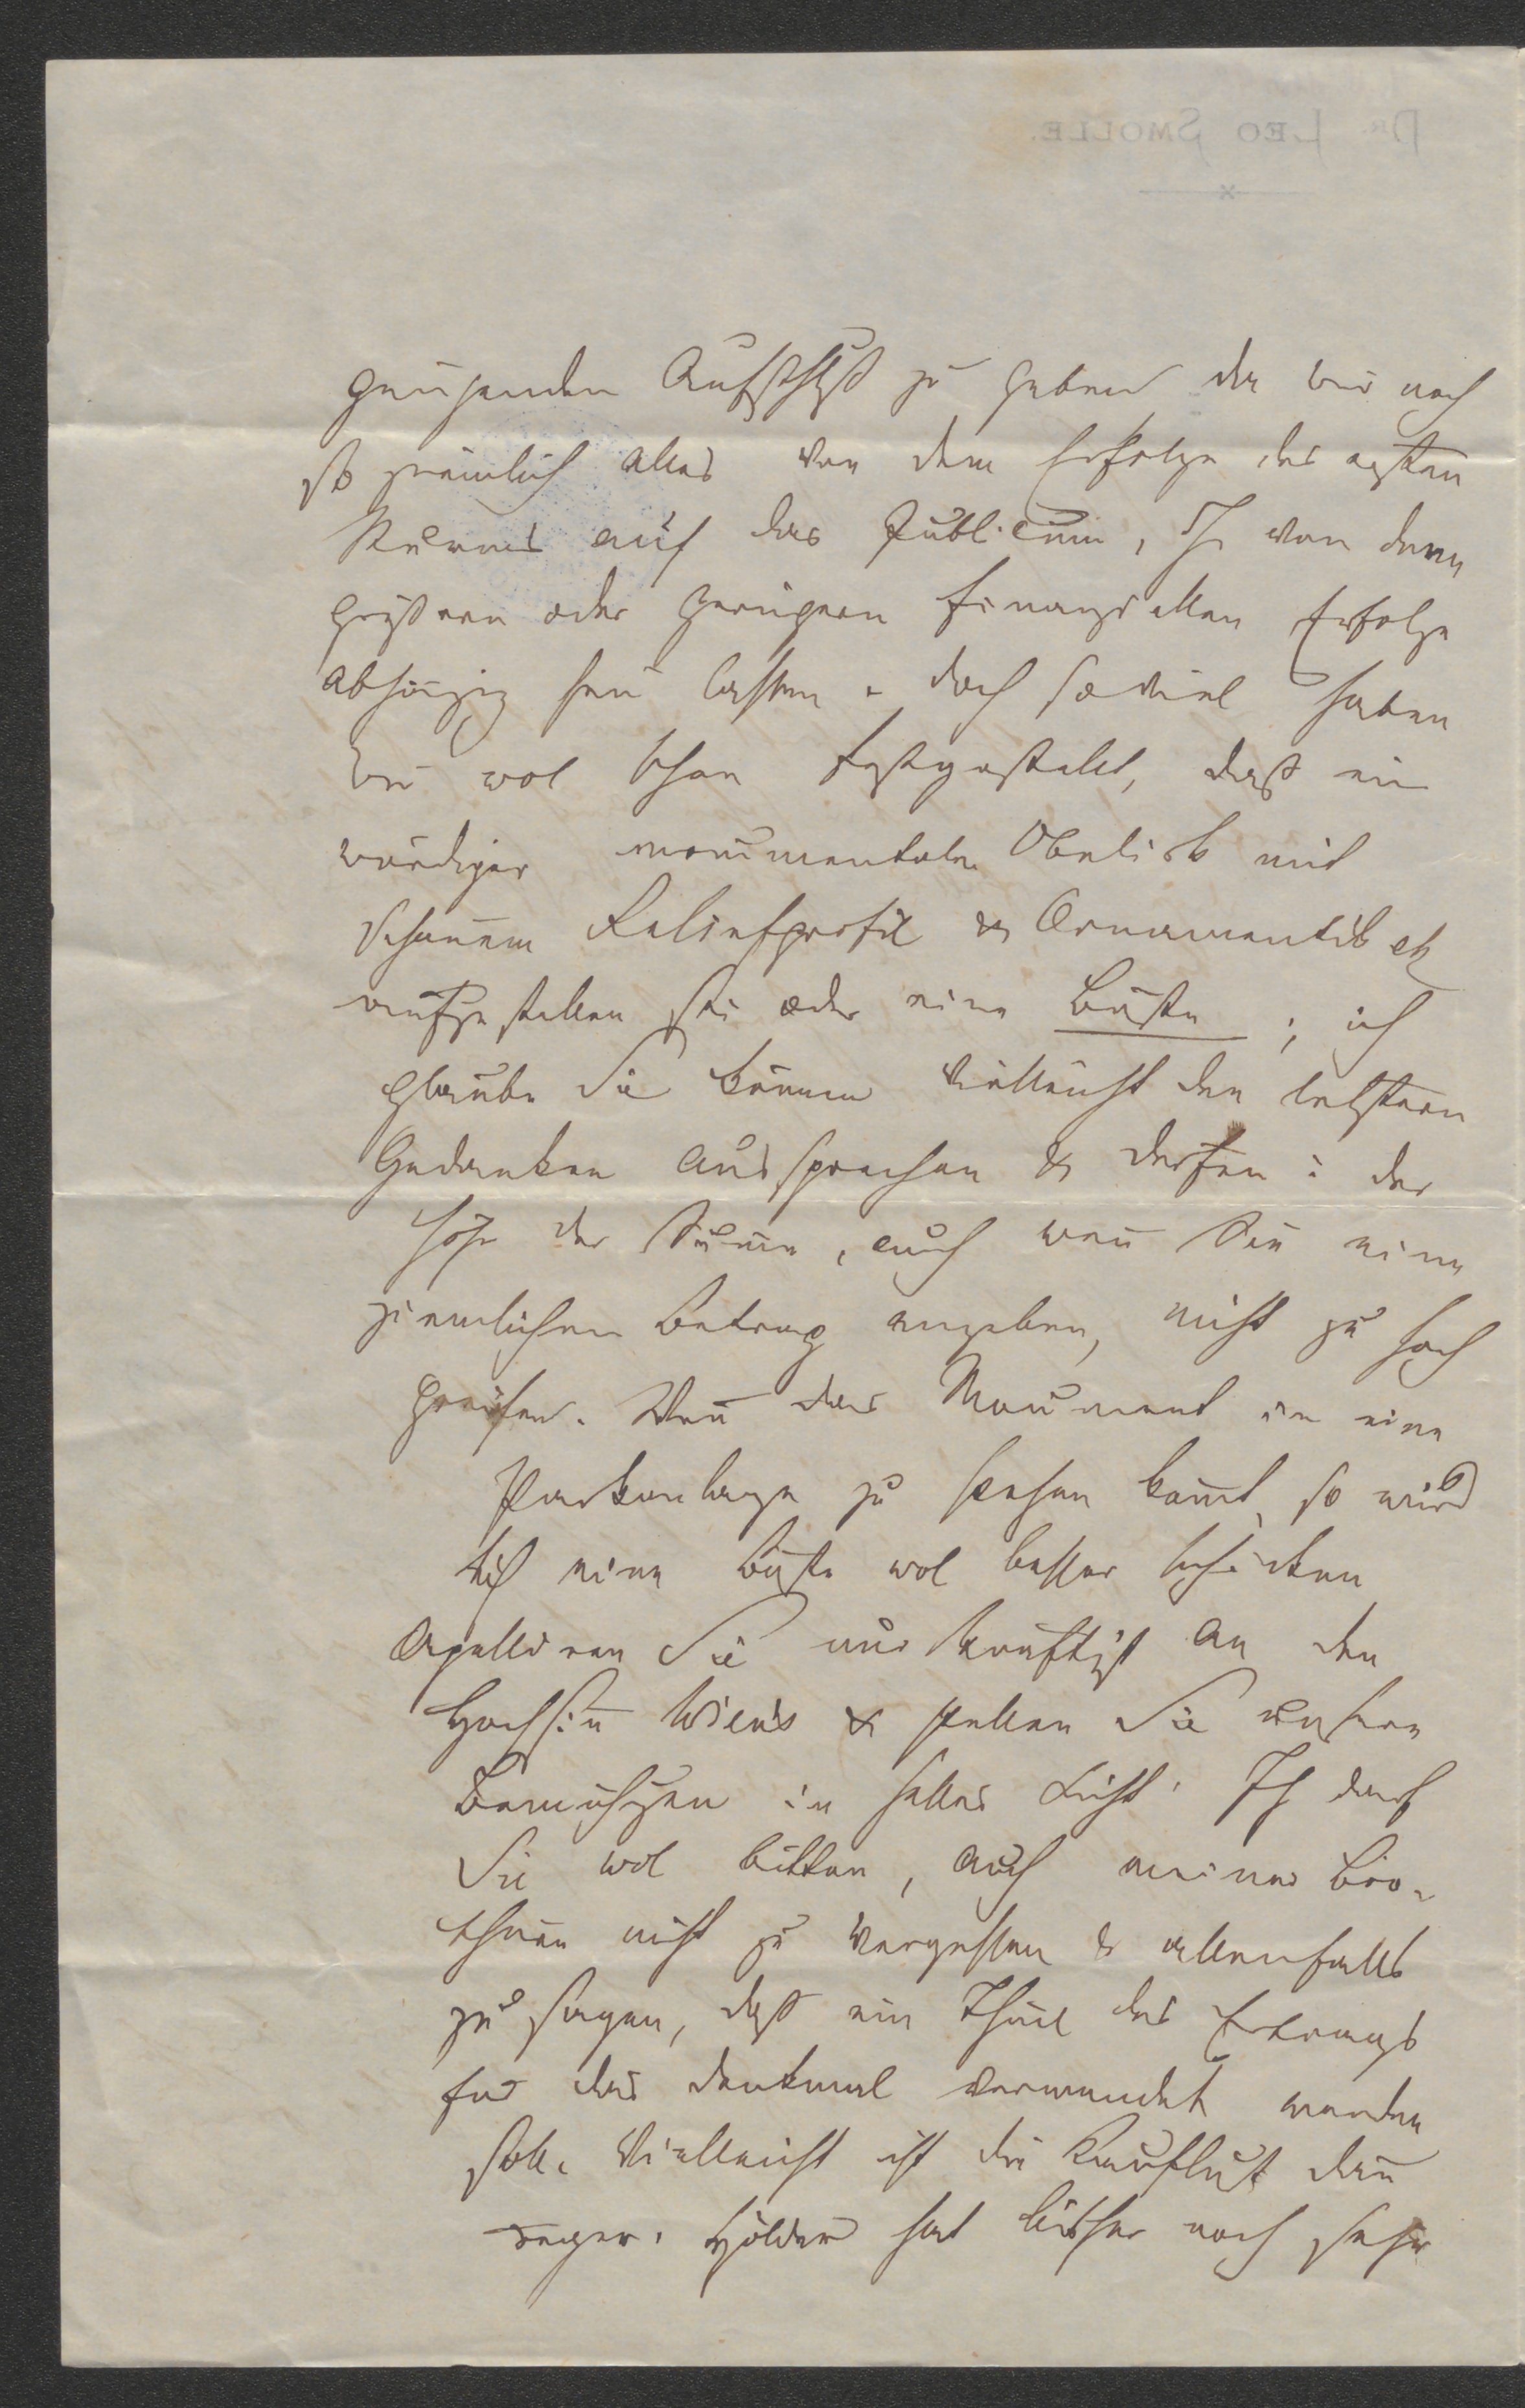 DR. LEO SMOLLE.
genügenden Aufschluß zu geben da wir noch
so ziemlich alles von dem Erfolge des ersten
auf das Publicum, von dem
größeren oder geringern finanziellen Erfolge
abhängig sein lassen. doch soviel haben
wir wol schon festgestellt, daß ein
würdiger monumentaler Obelisk mit
schönem Reliefprofil & Ornamentik etz
aufzustellen sei oder eine Büste; ich
glaube Sie können vielleicht den letztern
Gedanken aussprechen & dürfen i. der
Höhe der Sume, auch wenn Sie einen
ziemlichen Betrag angeben, nicht zu hoch
greifen. Wenn das Monument in eine
Parkanlage zu stehen komt, so wird
sich eine Büste wol besser schicken
Apelliren Sie nur kräftigst an den
Hochsinn Wien's & stellen Sie unsere
Bemühgen in helles Licht. Ich darf
Sie wol bitten, auch meiner Bro-
schüre nicht zu vergessen & allenfalls
zu sagen, daß ein Theil des Ertrags
für das Denkmal verwendet werden
soll. Vielleicht ist die Kauflust dann
reger. Hölder hat bisher noch sehr